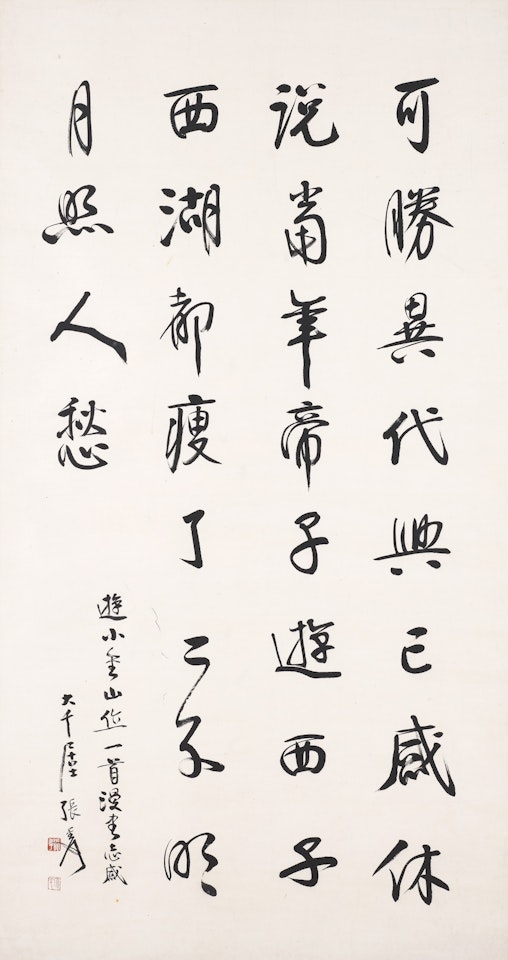 可勝異代興亡感休
說當年帝子遊西子
西湖都瘦了二分明
月照人愁
遊小金山作一首漫書志感
大千居士張爰